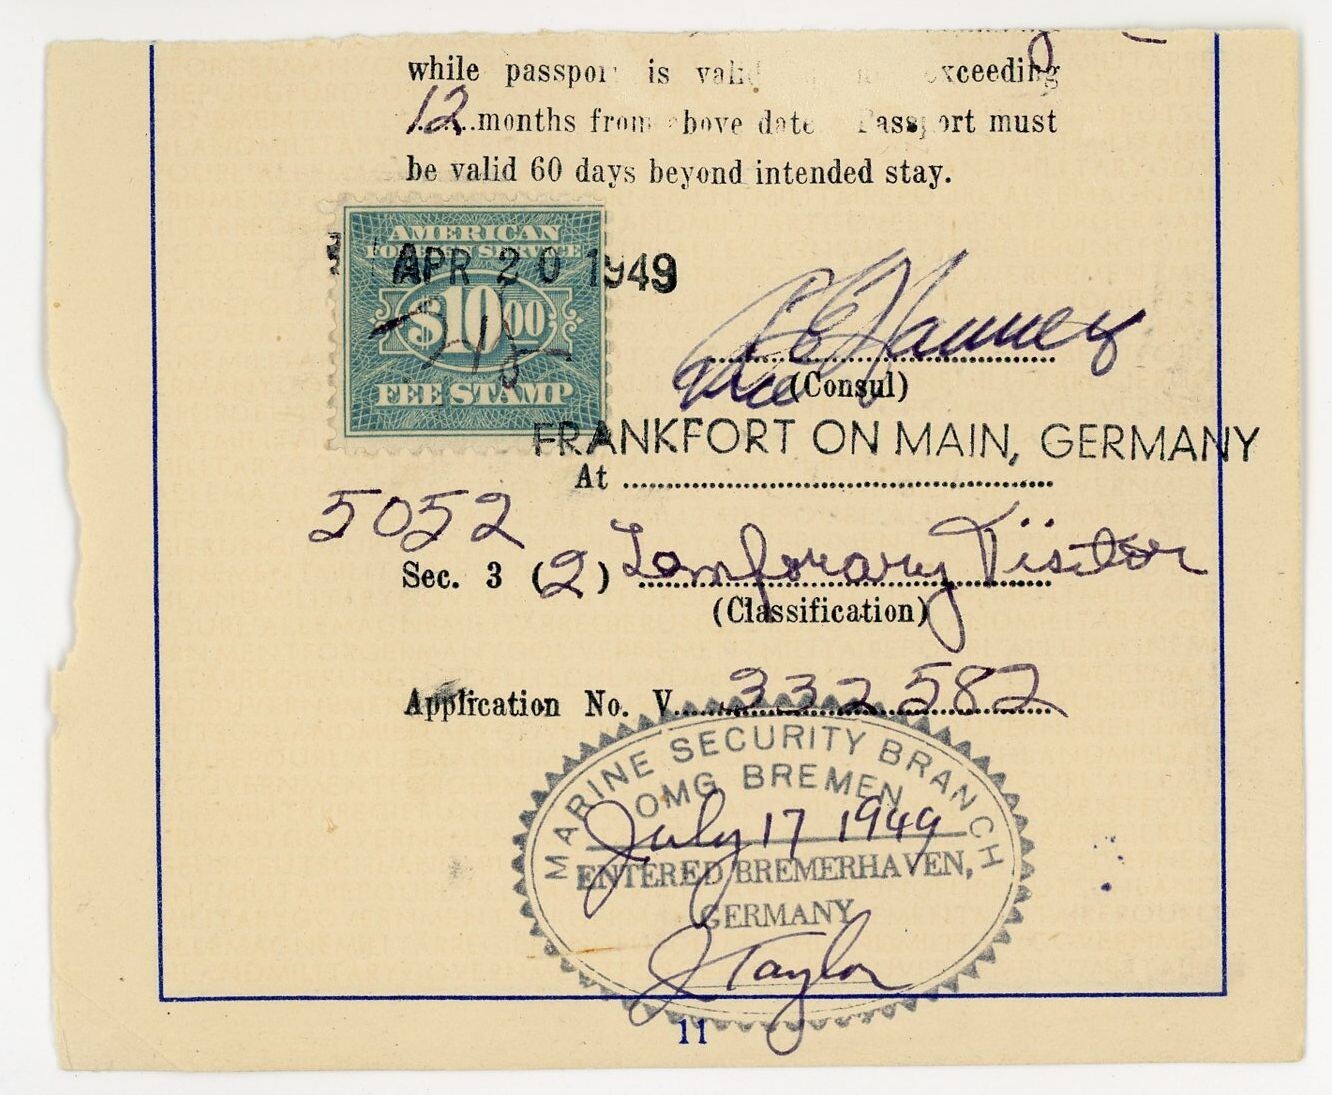 while passport is valid xceeding
12 months from above date. Passport must
be valid 60 days beyond intended stay.
AMERICAN
FOREIGN SERVICE
APR 20 1949
$10.00
FEE STAMP
Vice (Consul)
FRANKFORT ON MAIN, GERMANY
At
5052
Sec. 3 (2) Temporary Visitor
(Classification)
Application No. V 332582
MARINE SECURITY BRANCH
OMG BREMEN
July 17 1949
ENTERED BREMERHAVEN,
GERMANY
J Taylor
11